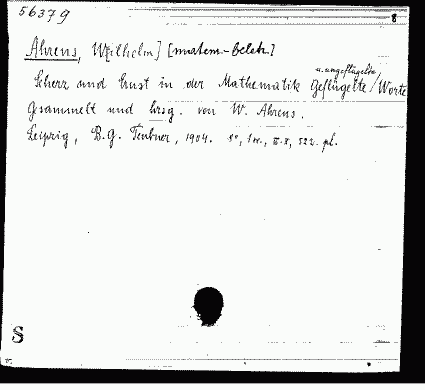 56379
8
Ahrens, W[ilhelm] [matem.-beletr.]
u. ungeflügelte
Scherz und Ernst in der Mathematik Geflügelte / Worte
Gesammelt und hrsg. von W. Ahrens.
Leipzig, B.G. Teubner, 1904. 8°, 522. pl.
S